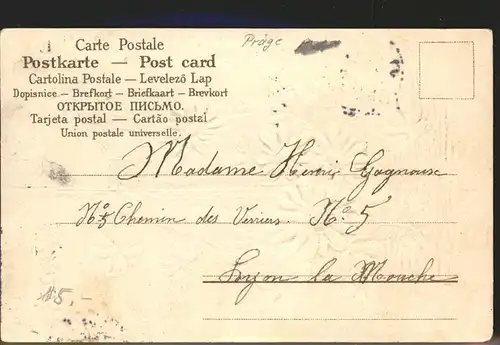 Carte Postale
Präge
Postkarte — Post card
Cartolina Postale — Levelező Lap
Dopisnice — Brefkort — Briefkaart — Brevkort
ОТКРЫТОЕ ПИСЬМО.
Tarjeta postal — Cartão postal
Union postale universelle.
Madame Henri Gagnouse
No 5 Chemin des Verriers. No. 5
Lyon la Mouche
5,-